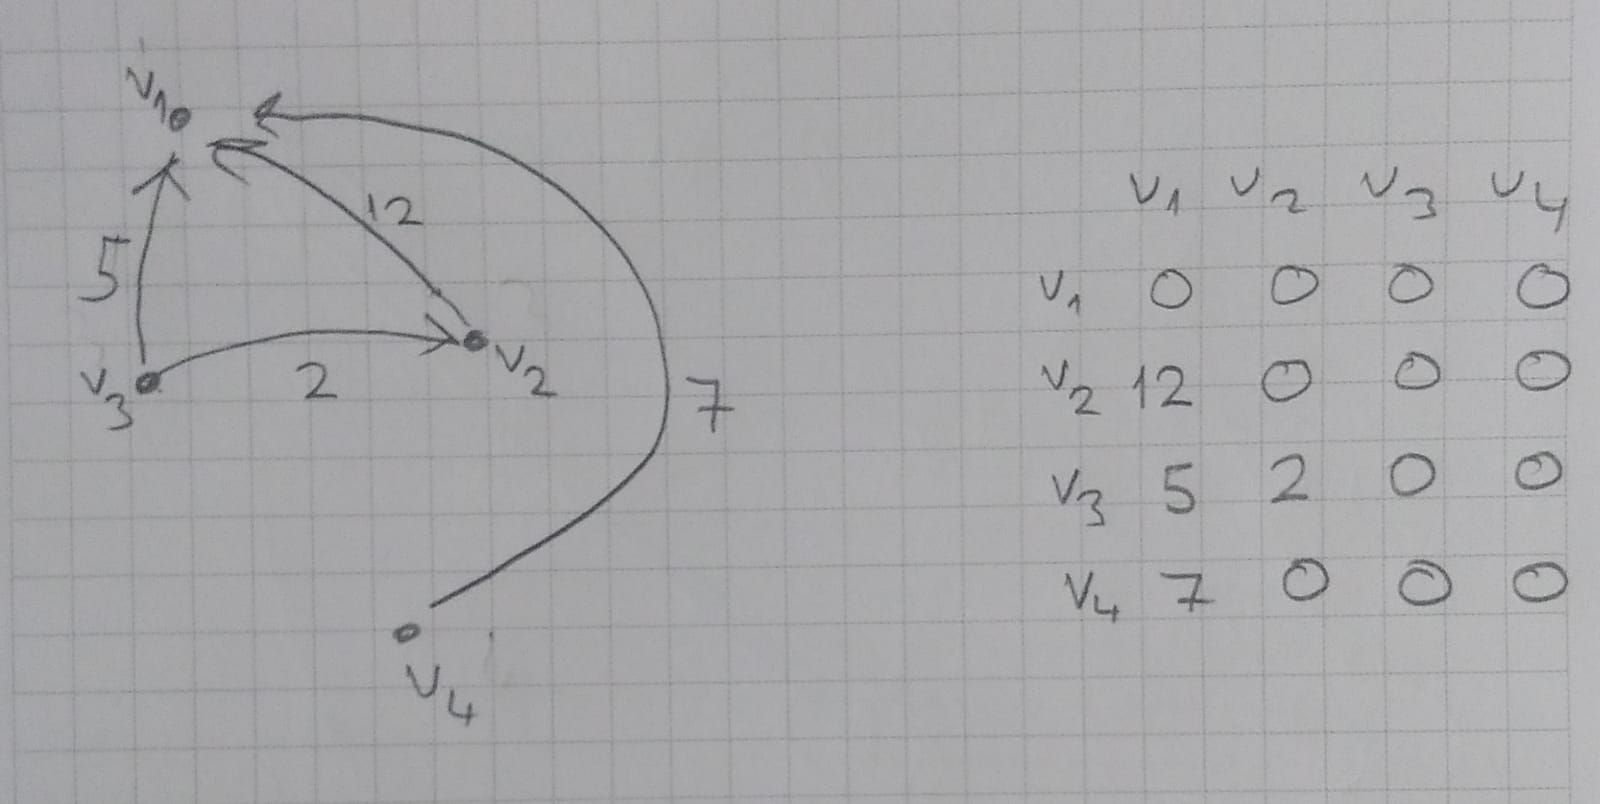 v1
12
5
2
v2
v3
7
v4
v1 v2 v3 v4
v1 0 0 0 0
v2 12 0 0 0
v3 5 2 0 0
v4 7 0 0 0